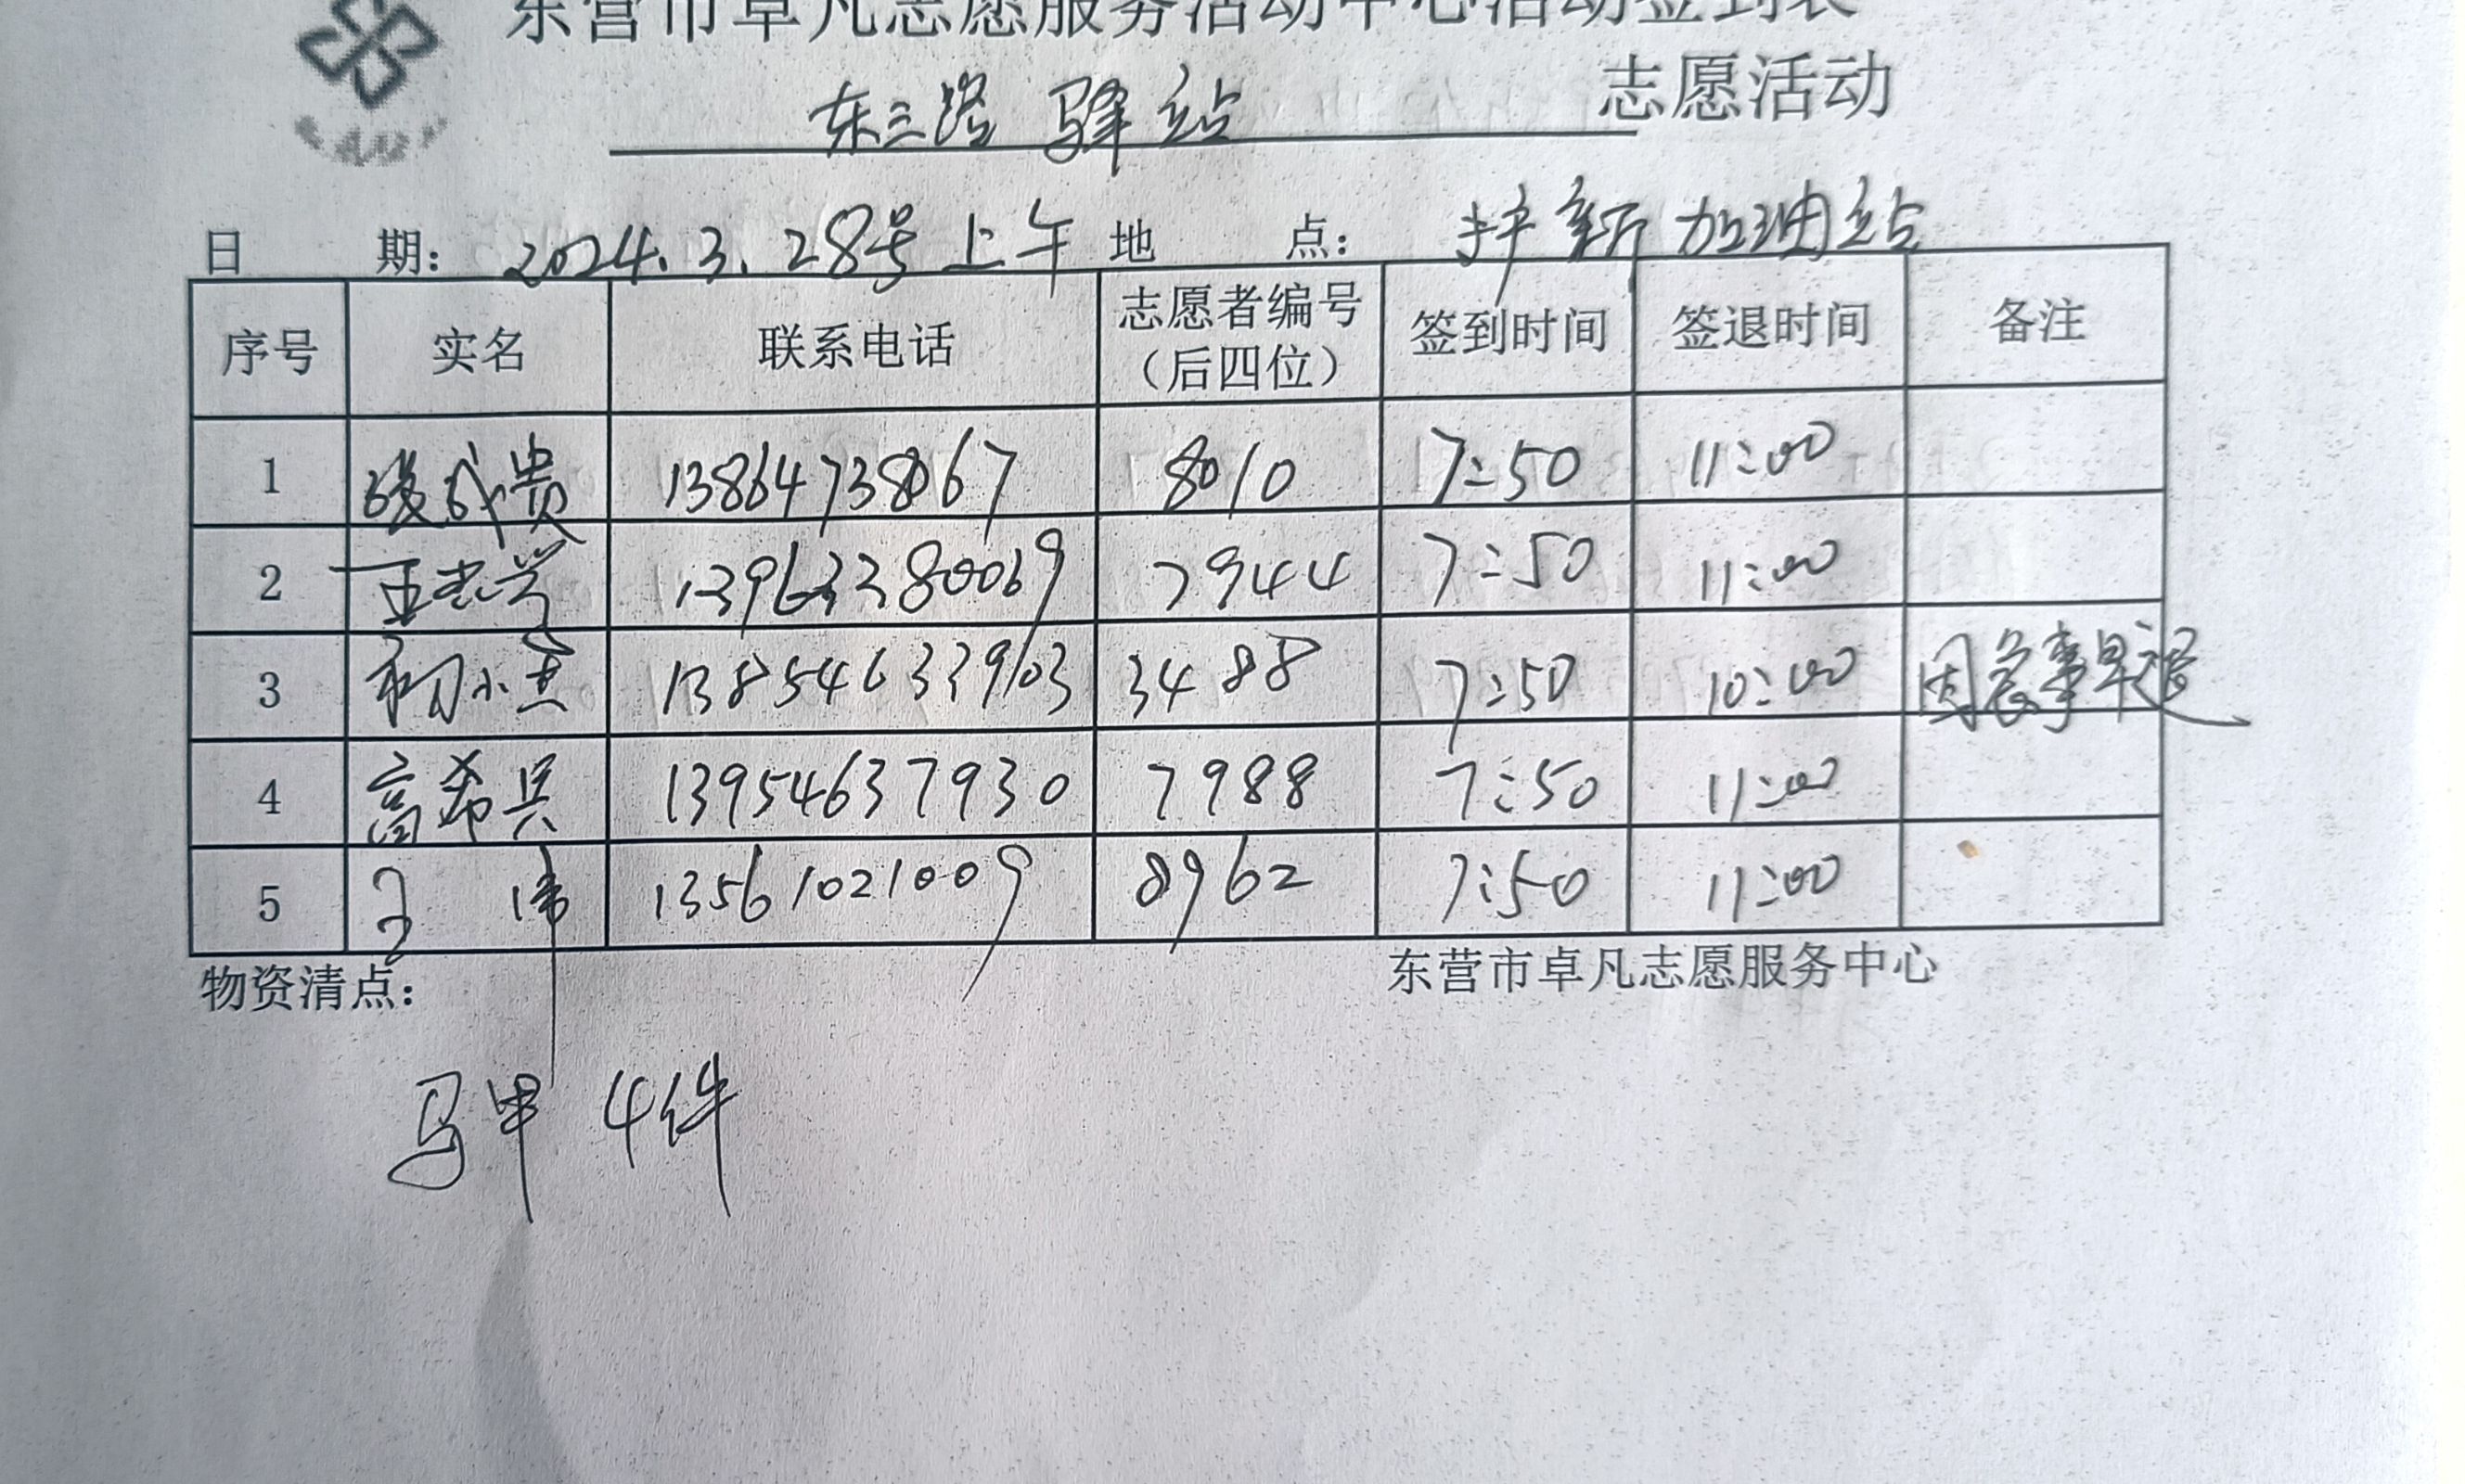 东营市卓凡志愿服务活动中心活动签到表
东三路 驿站 志愿活动
日 期： 2024.3.28号上午 地 点： 护新加油站
序号 实名 联系电话 志愿者编号（后四位） 签到时间 签退时间 备注
1 成贵 13864738067 8010 7:50 11:00
2 王 13963380069 7944 7:50 11:00
3 小 13854633903 3488 7:50 10:00 因家事早退
4 高希兵 13954637930 7988 7:50 11:00
5 伟 13561021009 8962 7:50 11:00
物资清点： 东营市卓凡志愿服务中心
马甲 4件